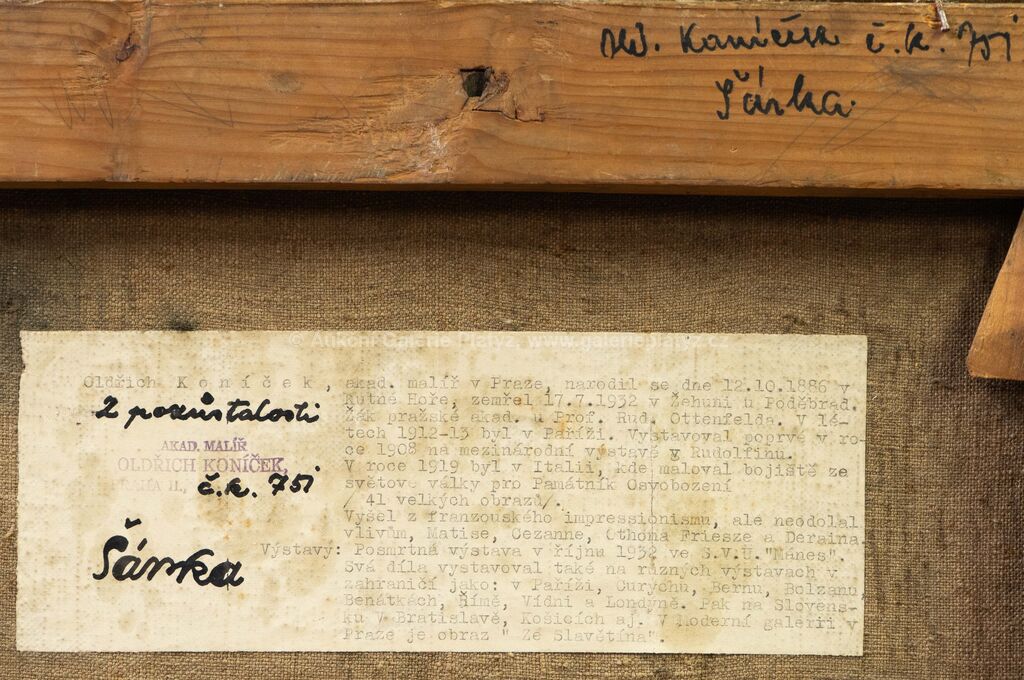 Koníček č.k. 751
Šárka
© Aukční Galerie Platýz, www.galerieplatyz.cz
Oldřich Koníček, akad. malíř v Praze, narodil se dne 12.10.1886 v
Kutné Hoře, zemřel 17.7.1932 v Žehuni u Poděbrad.
Žák pražské akad. u Prof. Rud. Ottenfelda. V lé-
tech 1912-13 byl v Paříži. Vystavoval poprvé v ro-
ce 1908 na mezinárodní výstavě v Rudolfinu.
V roce 1919 byl v Italii, kde maloval bojiště ze
světové války pro Památník Osvobození
/ 41 velkých obrazů/.
Vyšel z franzouského impressionismu, ale neodolal
vlivům, Matise, Cezanne, Othona Friesze a Deraina.
Výstavy: Posmrtná výstava v říjnu 1932 ve S.V.U."Mánes".
Svá díla vystavoval také na různých výstavách v
zahraničí jako: v Paříži, Curychu, Bernu, Bolzanu,
Benátkách, Římě, Vídni a Londýně. Pak na Sloven-
sku v Bratislavě, Košicích aj. V Moderní galerii v
Praze je obraz " Ze Slavětína".
Z pozůstalosti
AKAD. MALÍŘ
OLDŘICH KONÍČEK,
PRAHA II., č.k. 751
Šárka